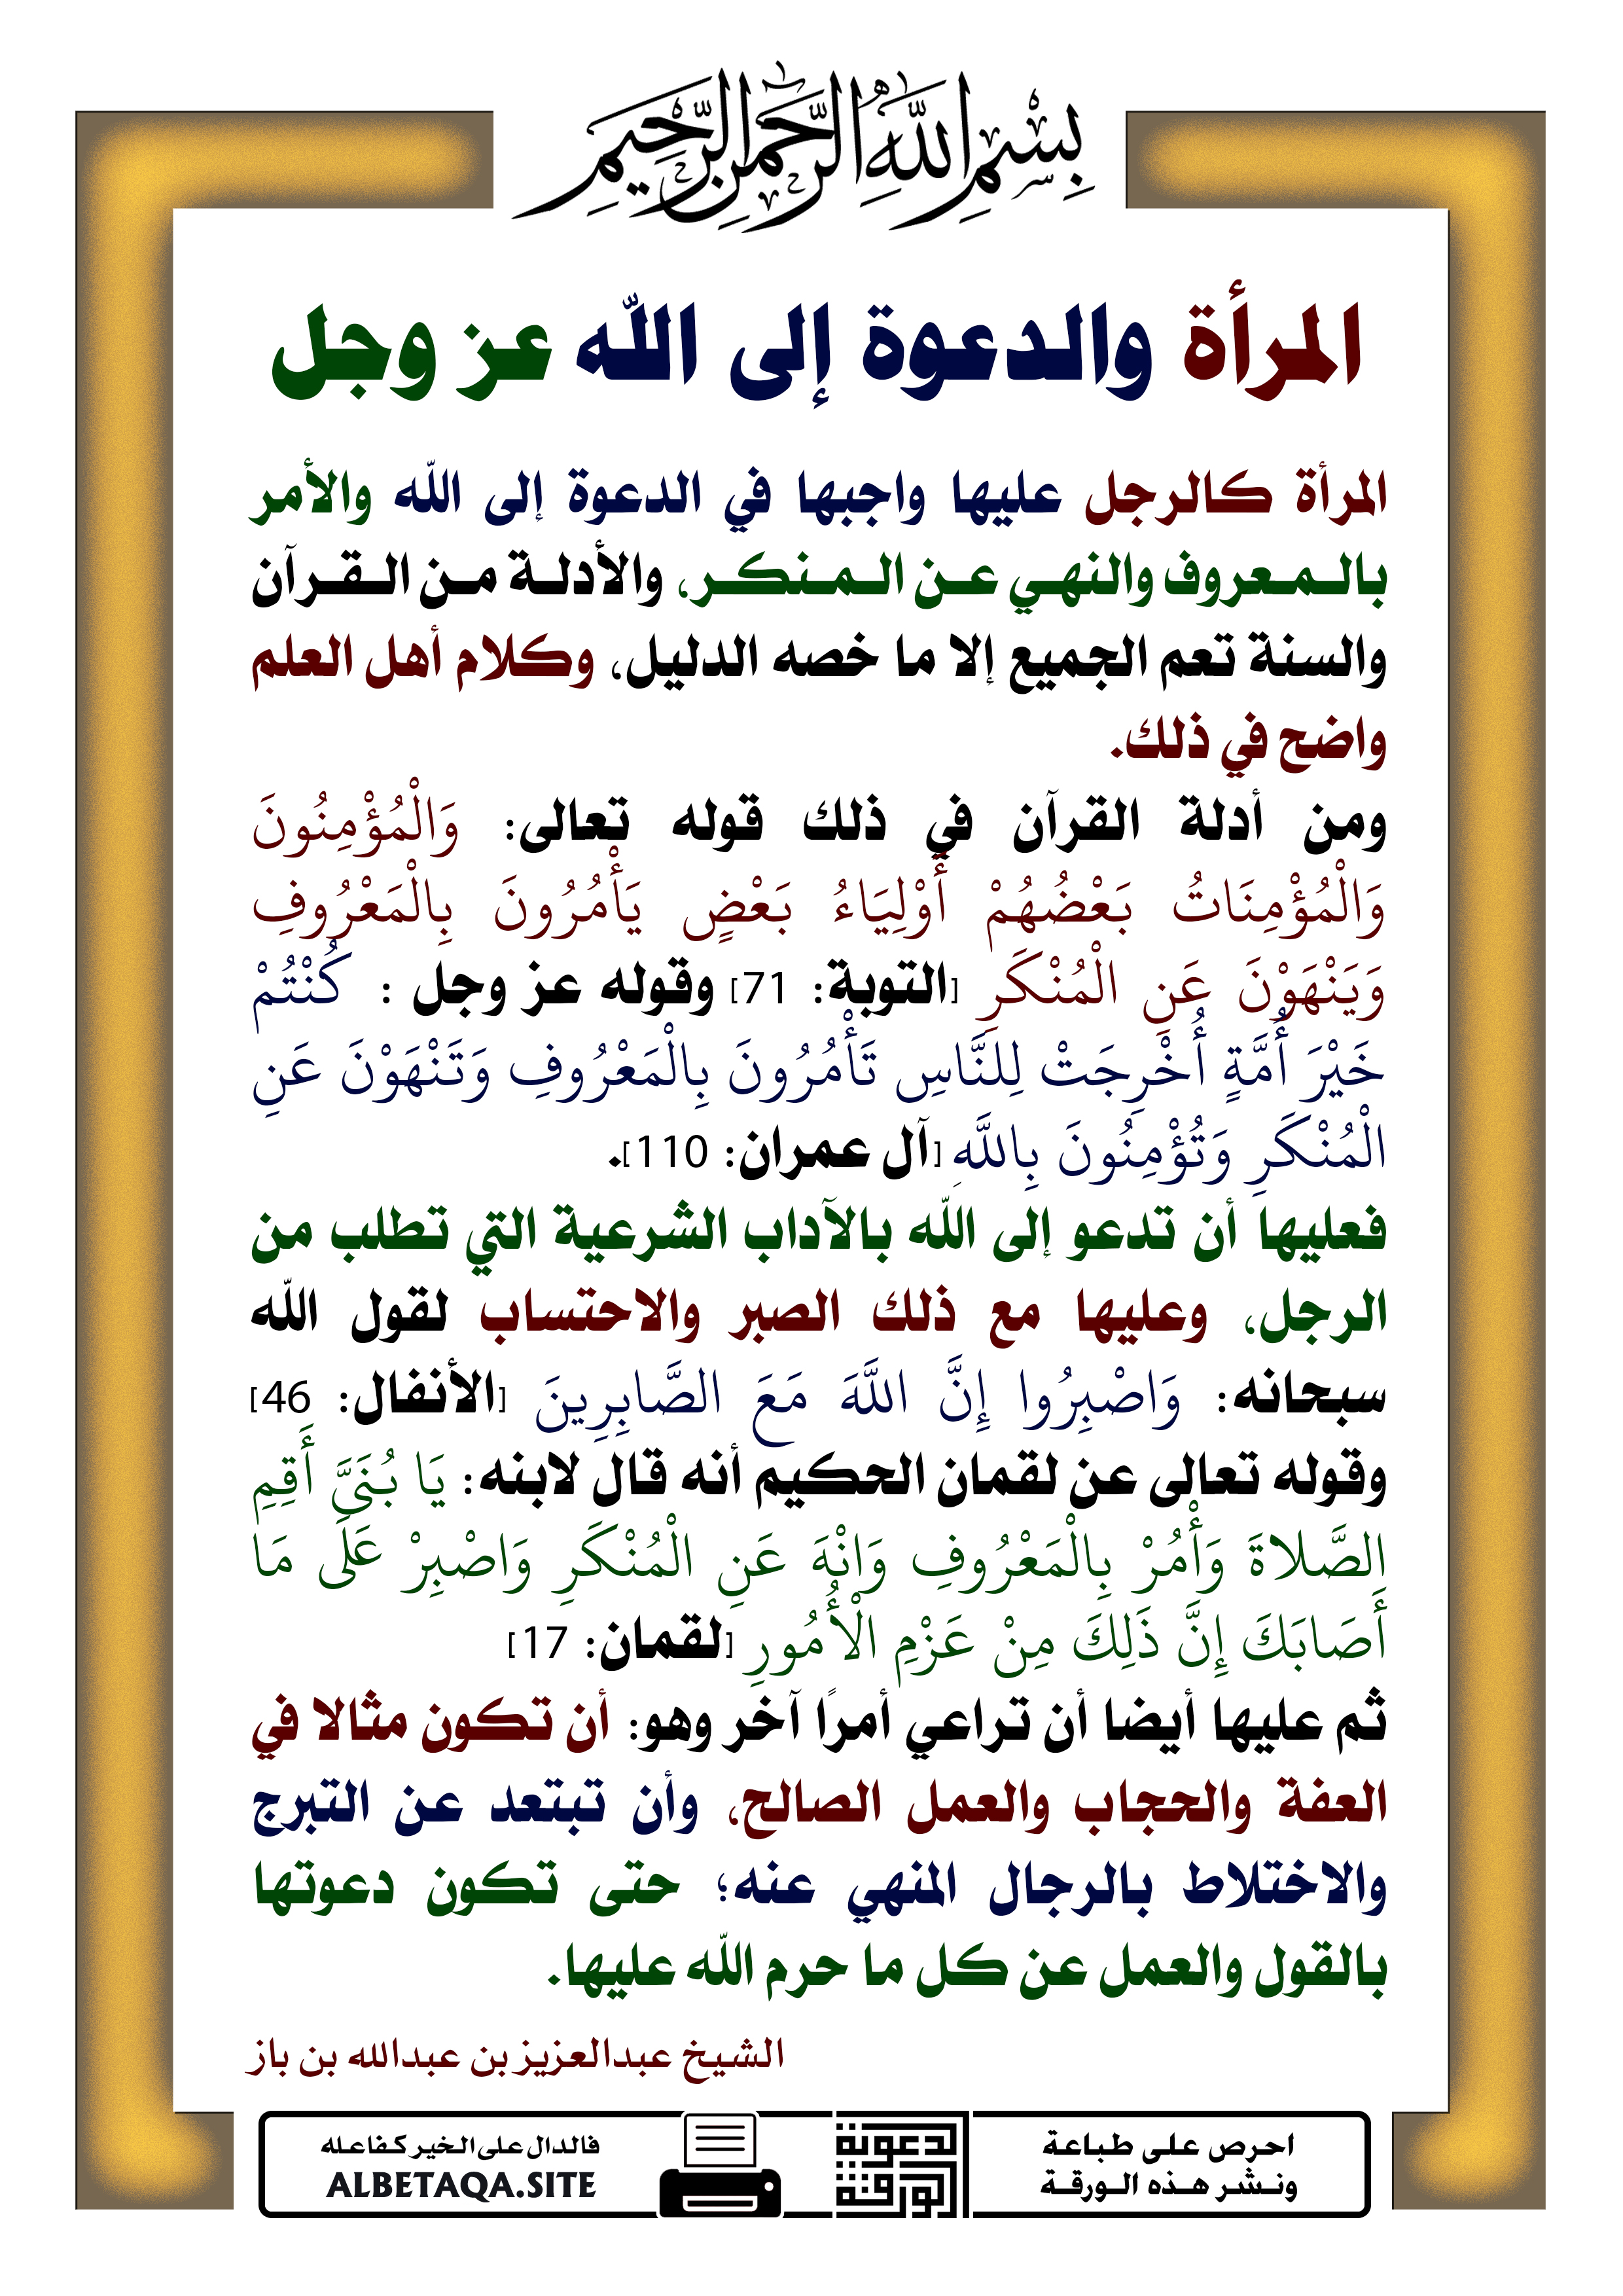 بِسْمِ اللَّهِ الرَّحْمَٰنِ الرَّحِيمِ
المرأة والدعوة إلى الله عز وجل
المرأة كالرجل عليها واجبها في الدعوة إلى الله والأمر
بالمعروف والنهي عن المنكر، والأدلة من القرآن
والسنة تعم الجميع إلا ما خصه الدليل، وكلام أهل العلم
واضح في ذلك.
ومن أدلة القرآن في ذلك قوله تعالى: وَالْمُؤْمِنُونَ
وَالْمُؤْمِنَاتُ بَعْضُهُمْ أَوْلِيَاءُ بَعْضٍ يَأْمُرُونَ بِالْمَعْرُوفِ
وَيَنْهَوْنَ عَنِ الْمُنْكَرِ [التوبة: 71] وقوله عز وجل : كُنْتُمْ
خَيْرَ أُمَّةٍ أُخْرِجَتْ لِلنَّاسِ تَأْمُرُونَ بِالْمَعْرُوفِ وَتَنْهَوْنَ عَنِ
الْمُنْكَرِ وَتُؤْمِنُونَ بِاللَّهِ [آل عمران: 110].
فعليها أن تدعو إلى الله بالآداب الشرعية التي تطلب من
الرجل، وعليها مع ذلك الصبر والاحتساب لقول الله
سبحانه: وَاصْبِرُوا إِنَّ اللَّهَ مَعَ الصَّابِرِينَ [الأنفال: 46]
وقوله تعالى عن لقمان الحكيم أنه قال لابنه: يَا بُنَيَّ أَقِمِ
الصَّلاةَ وَأْمُرْ بِالْمَعْرُوفِ وَانْهَ عَنِ الْمُنْكَرِ وَاصْبِرْ عَلَى مَا
أَصَابَكَ إِنَّ ذَلِكَ مِنْ عَزْمِ الْأُمُورِ [لقمان: 17]
ثم عليها أيضا أن تراعي أمرًا آخر وهو: أن تكون مثالا في
العفة والحجاب والعمل الصالح، وأن تبتعد عن التبرج
والاختلاط بالرجال المنهي عنه؛ حتى تكون دعوتها
بالقول والعمل عن كل ما حرم الله عليها.
الشيخ عبدالعزيز بن عبدالله بن باز
احرص على طباعة
ونشر هذه الورقة
الورقة
الدعوية
فالدال على الخير كفاعله
ALBETAQA.SITE